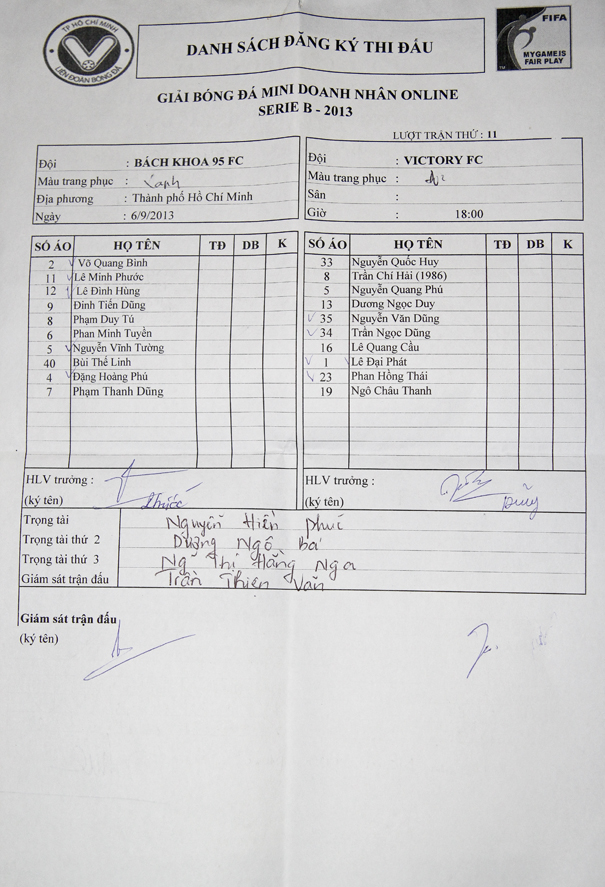 TP HỒ CHÍ MINH
LIÊN ĐOÀN BÓNG ĐÁ
DANH SÁCH ĐĂNG KÝ THI ĐẤU
FIFA
MY GAME IS
FAIR PLAY
GIẢI BÓNG ĐÁ MINI DOANH NHÂN ONLINE
SERIE B - 2013
LƯỢT TRẬN THỨ : 11
Đội : BÁCH KHOA 95 FC
Màu trang phục : Xanh
Địa phương : Thành phố Hồ Chí Minh
Ngày : 6/9/2013
Đội : VICTORY FC
Màu trang phục :
Sân :
Giờ 18:00
SỐ ÁO HỌ TÊN TĐ DB K
2 Võ Quang Bình
11 Lê Minh Phước
12 Lê Đình Hùng
9 Đinh Tiến Dũng
8 Phạm Duy Tú
6 Phan Minh Tuyền
5 Nguyễn Vĩnh Tường
40 Bùi Thế Linh
4 Đặng Hoàng Phú
7 Phạm Thanh Dũng
SỐ ÁO HỌ TÊN TĐ DB K
33 Nguyễn Quốc Huy
8 Trần Chí Hải (1986)
5 Nguyễn Quang Phú
13 Dương Ngọc Duy
35 Nguyễn Văn Dũng
34 Trần Ngọc Dũng
16 Lê Quang Cầu
1 Lê Đại Phát
23 Phan Hồng Thái
19 Ngô Châu Thanh
HLV trưởng :
(ký tên) Phước
HLV trưởng :
(ký tên) Dũng
Trọng tài Nguyễn Hiền Phúc
Trọng tài thứ 2 Dương Ngô Bá
Trọng tài thứ 3 Ngô Thị Hằng Nga
Giám sát trận đấu Trần Thiên Văn
Giám sát trận đấu
(ký tên)